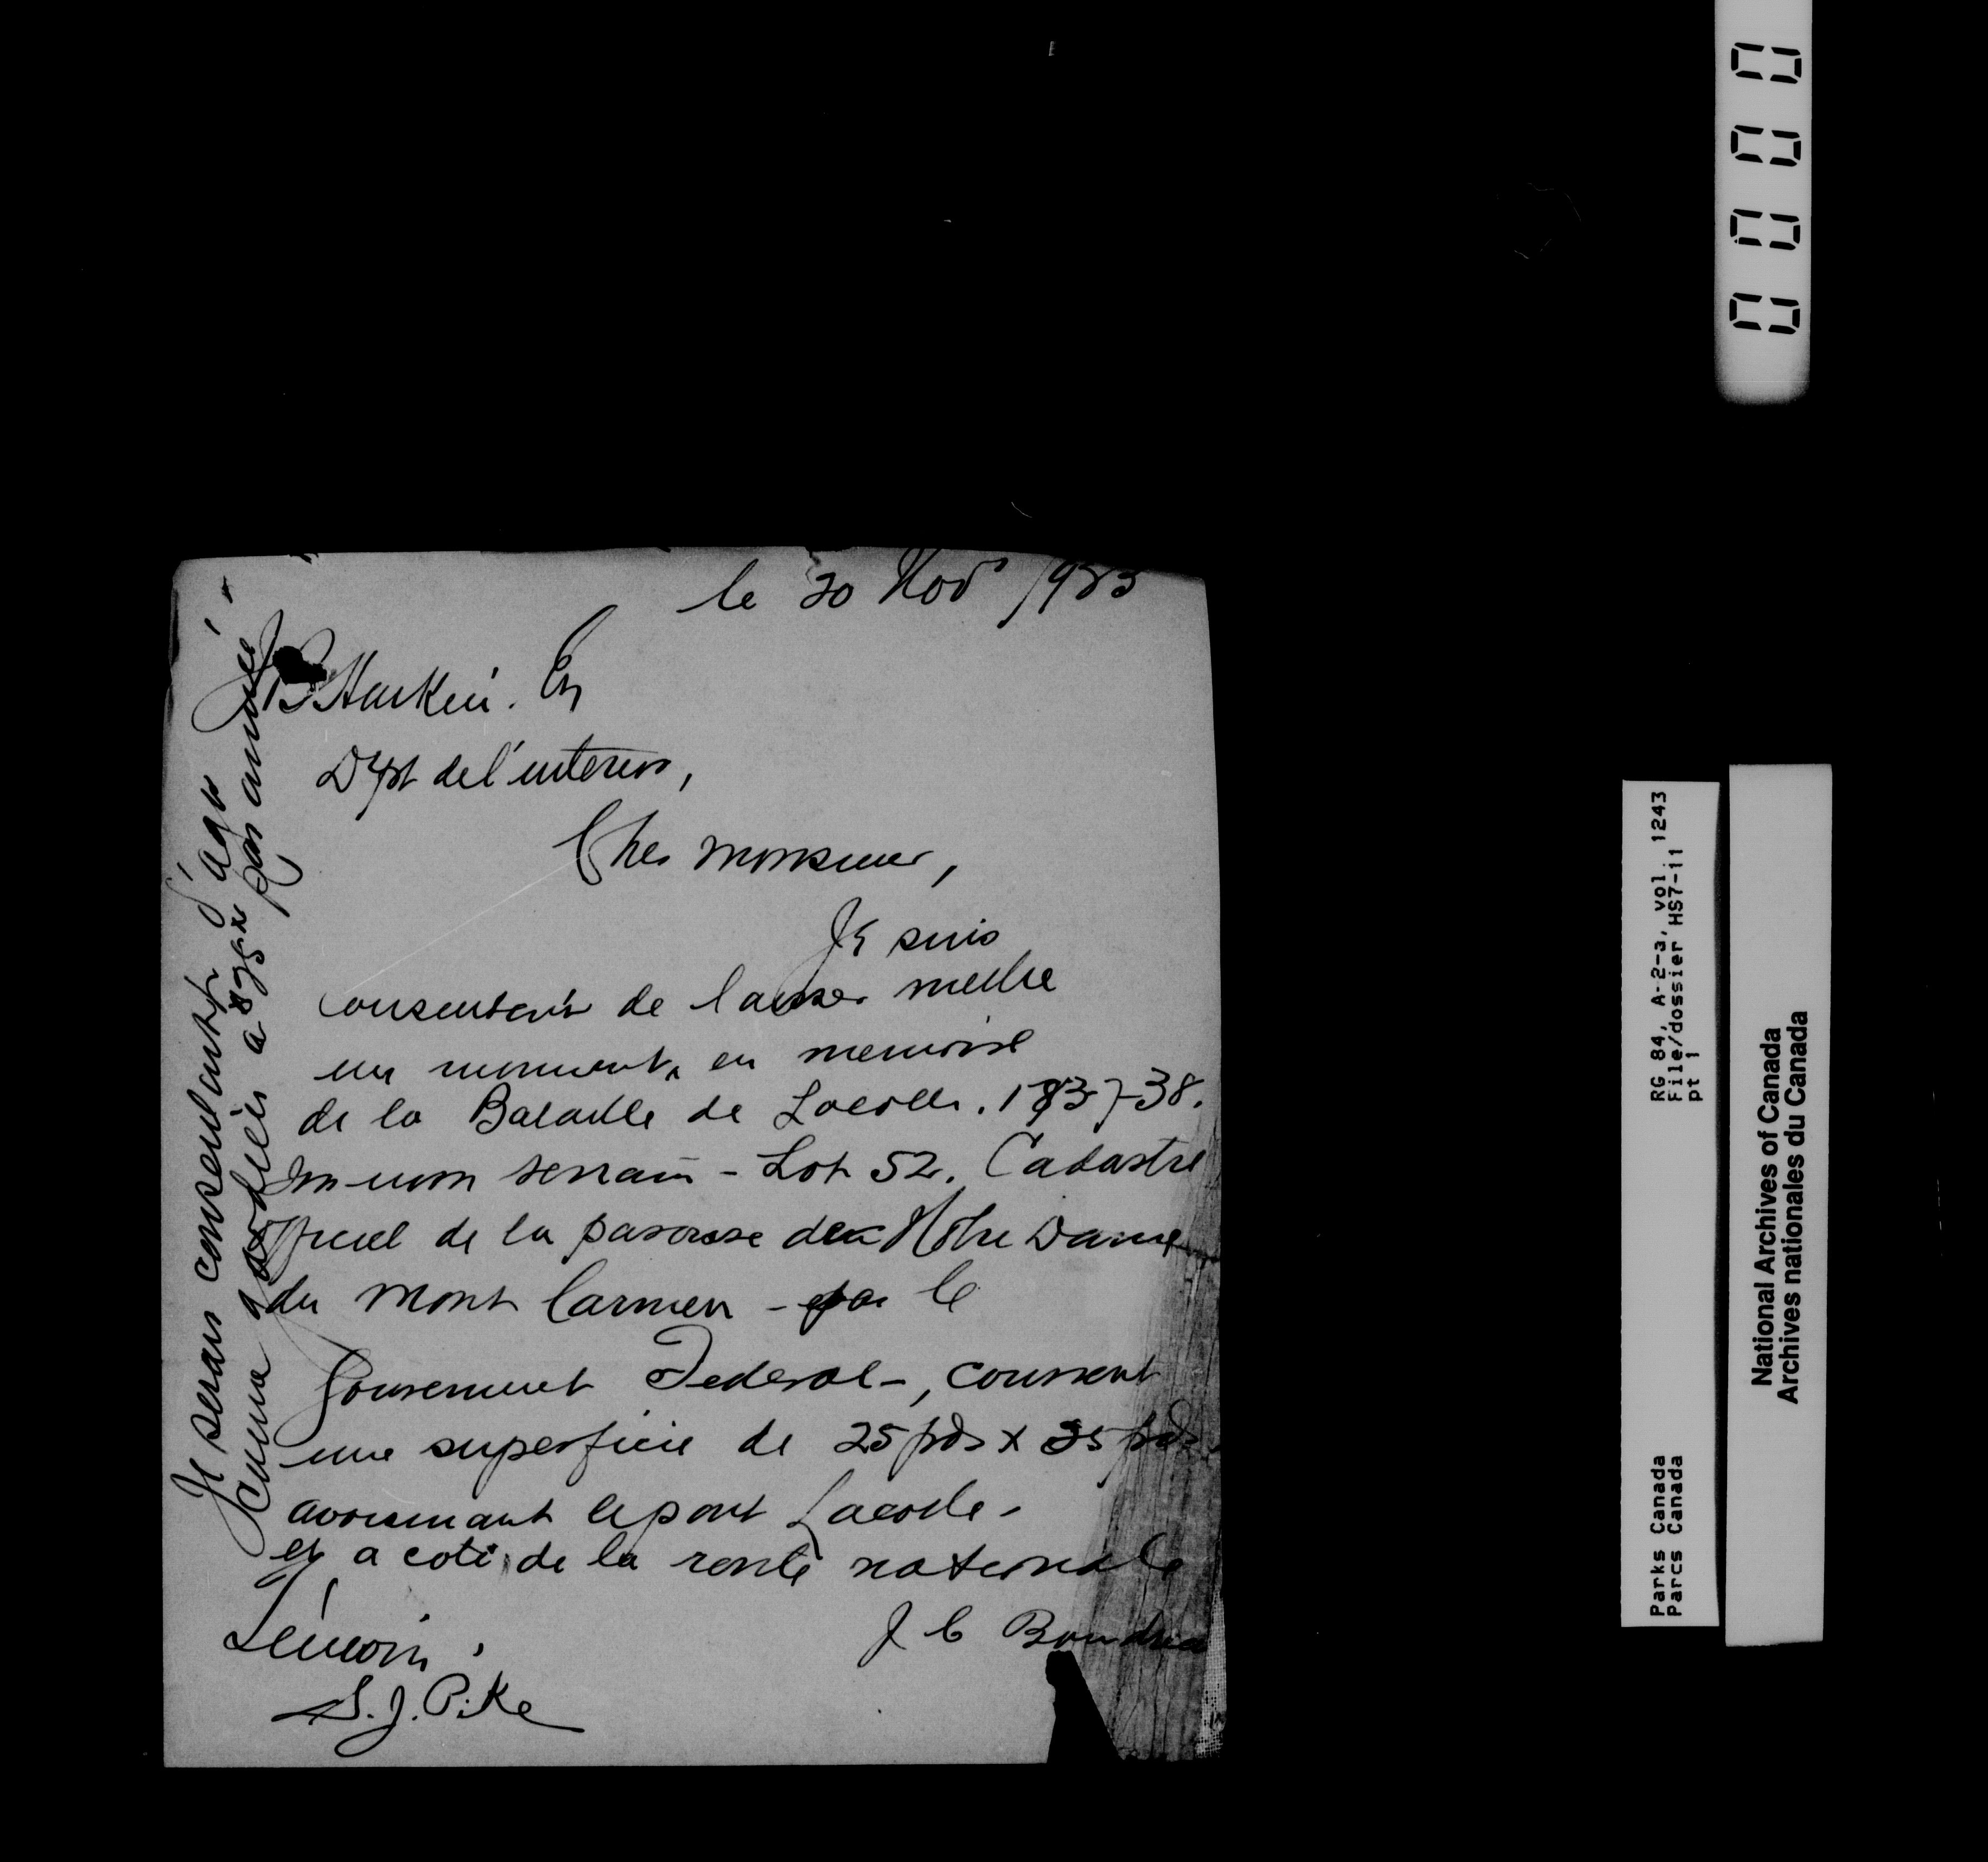 le 30 Nov 1923
JB Harkin. Esq
Dept de l'interieur,
Cher monsieur,
Je suis
consentant de laisser mettre
un monument en memoire
de la Bataille de Lacolle. 1837-38.
sur mon terrain - Lot 52. Cadastre
officiel de la paroisse de Notre Dame
du Mont Carmen - par le
Gouvernement Federal -, couvrant
une superficie de 25 pds x 35 pds
avoisinant le pont Lacolle -
et a coté de la route nationale
J C Boudrea
Témoin,
S. J. Pike
Je serais consentant d'agir
comme gardien a par année
0000
RG 84, A-2-3, vol. 1243
File/dossier HS7-11
pt 1
Parks Canada
Parcs Canada
National Archives of Canada
Archives nationales du Canada